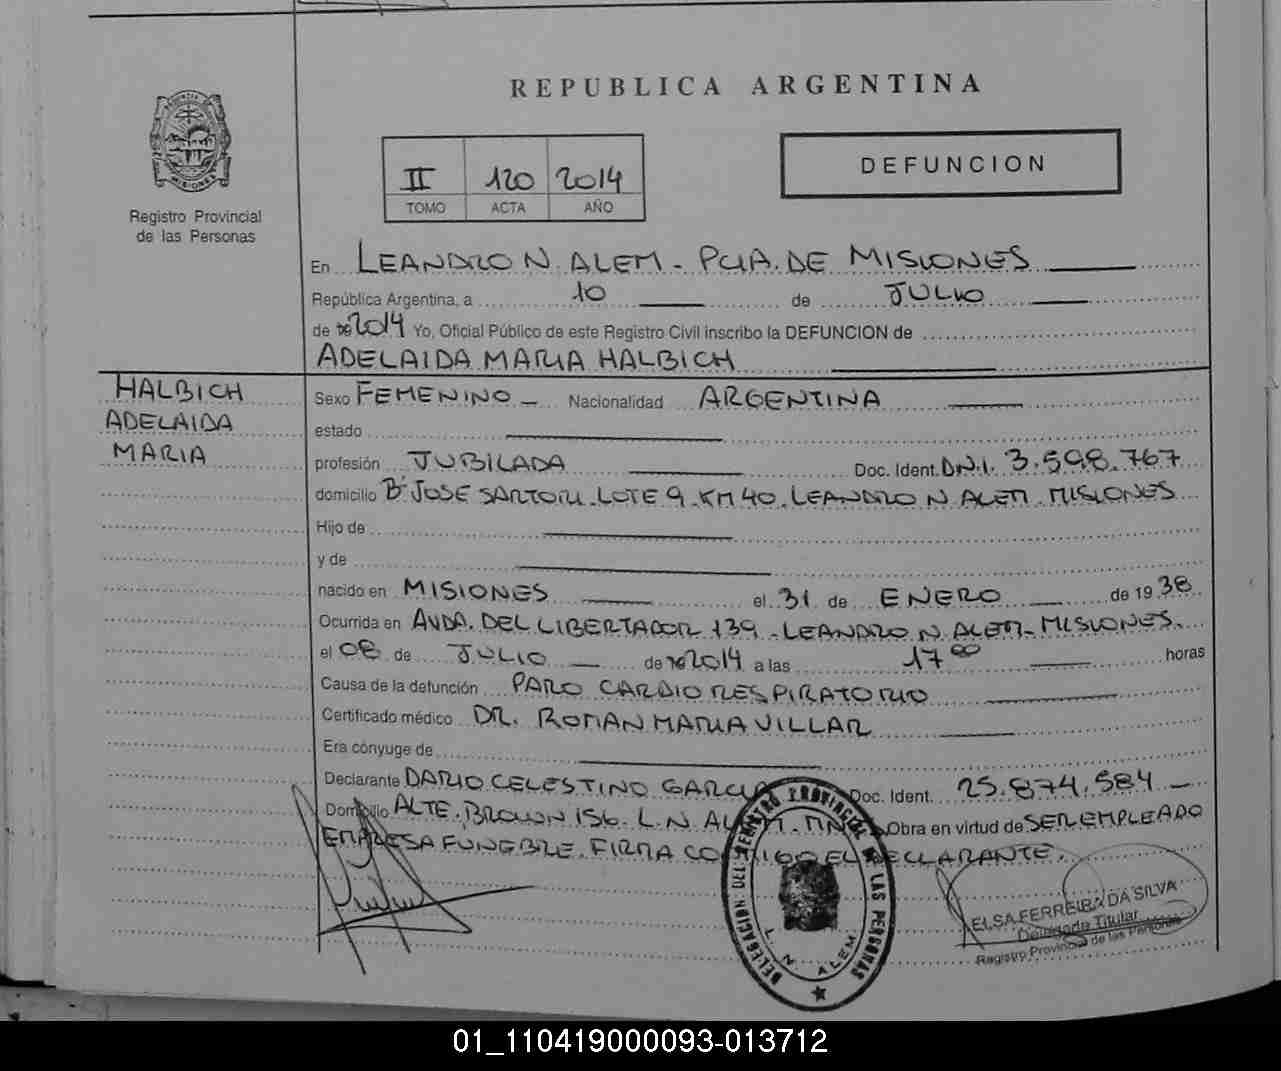 REPUBLICA ARGENTINA
PROVINCIA DE MISIONES
Registro Provincial
de las Personas
II 120 2014
TOMO ACTA AÑO
DEFUNCION
En LEANDRO N. ALEM - PCIA. DE MISIONES
República Argentina, a 10 de JULIO
de 2014 Yo, Oficial Público de este Registro Civil inscribo la DEFUNCION de
ADELAIDA MARIA HALBICH
HALBICH
ADELAIDA
MARIA
Sexo FEMENINO Nacionalidad ARGENTINA
estado
profesión JUBILADA Doc. Ident. D.N.I. 3.598.767
domicilio Bº JOSE SARTORI. LOTE 9. KM 40. LEANDRO N ALEM. MISIONES
Hijo de
y de
nacido en MISIONES el 31 de ENERO de 1938
Ocurrida en AVDA. DEL LIBERTADOR 139 - LEANDRO N. ALEM - MISIONES.
el 08 de JULIO de 2014 a las 17 00 horas
Causa de la defunción PARO CARDIO RESPIRATORIO
Certificado médico DR. ROMAN MARIA VILLAR
Era cónyuge de
Declarante DARIO CELESTINO GARCIA Doc. Ident. 25.874.584
Domicilio ALTE. BROWN 156. L.N. ALEM. Obra en virtud de SER EMPLEADO
EMPRESA FUNEBRE. FIRMA CONMIGO EL DECLARANTE.
DELEGACION DEL REGISTRO PROVINCIAL DE LAS PERSONAS
L. N. ALEM
ELSA FERREIRA DA SILVA
Delegada Titular
Registro Provincial de las Personas
01_110419000093-013712